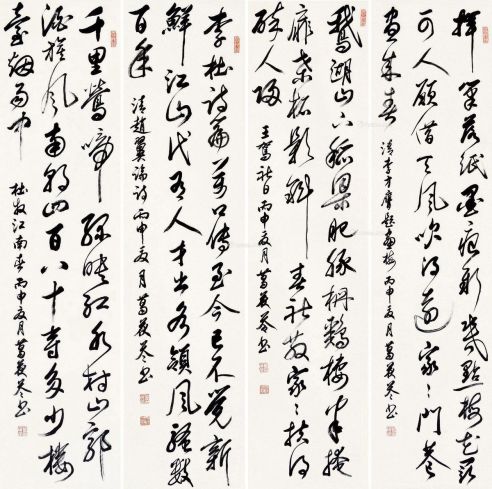 揮毫落紙墨痕新幾點梅花最
可人願借天風吹得遠家〻門巷
盡成春
清李方膺題畫梅丙申夏月書
鵝湖山下稻粱肥豚柵鷄棲半掩
扉桑柘影斜春社散家〻扶得
醉人歸
王駕社日丙申夏月書
李杜詩篇萬口傳至今已不覺新
鮮江山代有人才出各領風騷數
百年
清趙翼論詩丙申夏月書
千里鶯啼綠映紅水村山郭
酒旗風南朝四百八十寺多少樓
臺煙雨中
杜牧江南春丙申夏月書